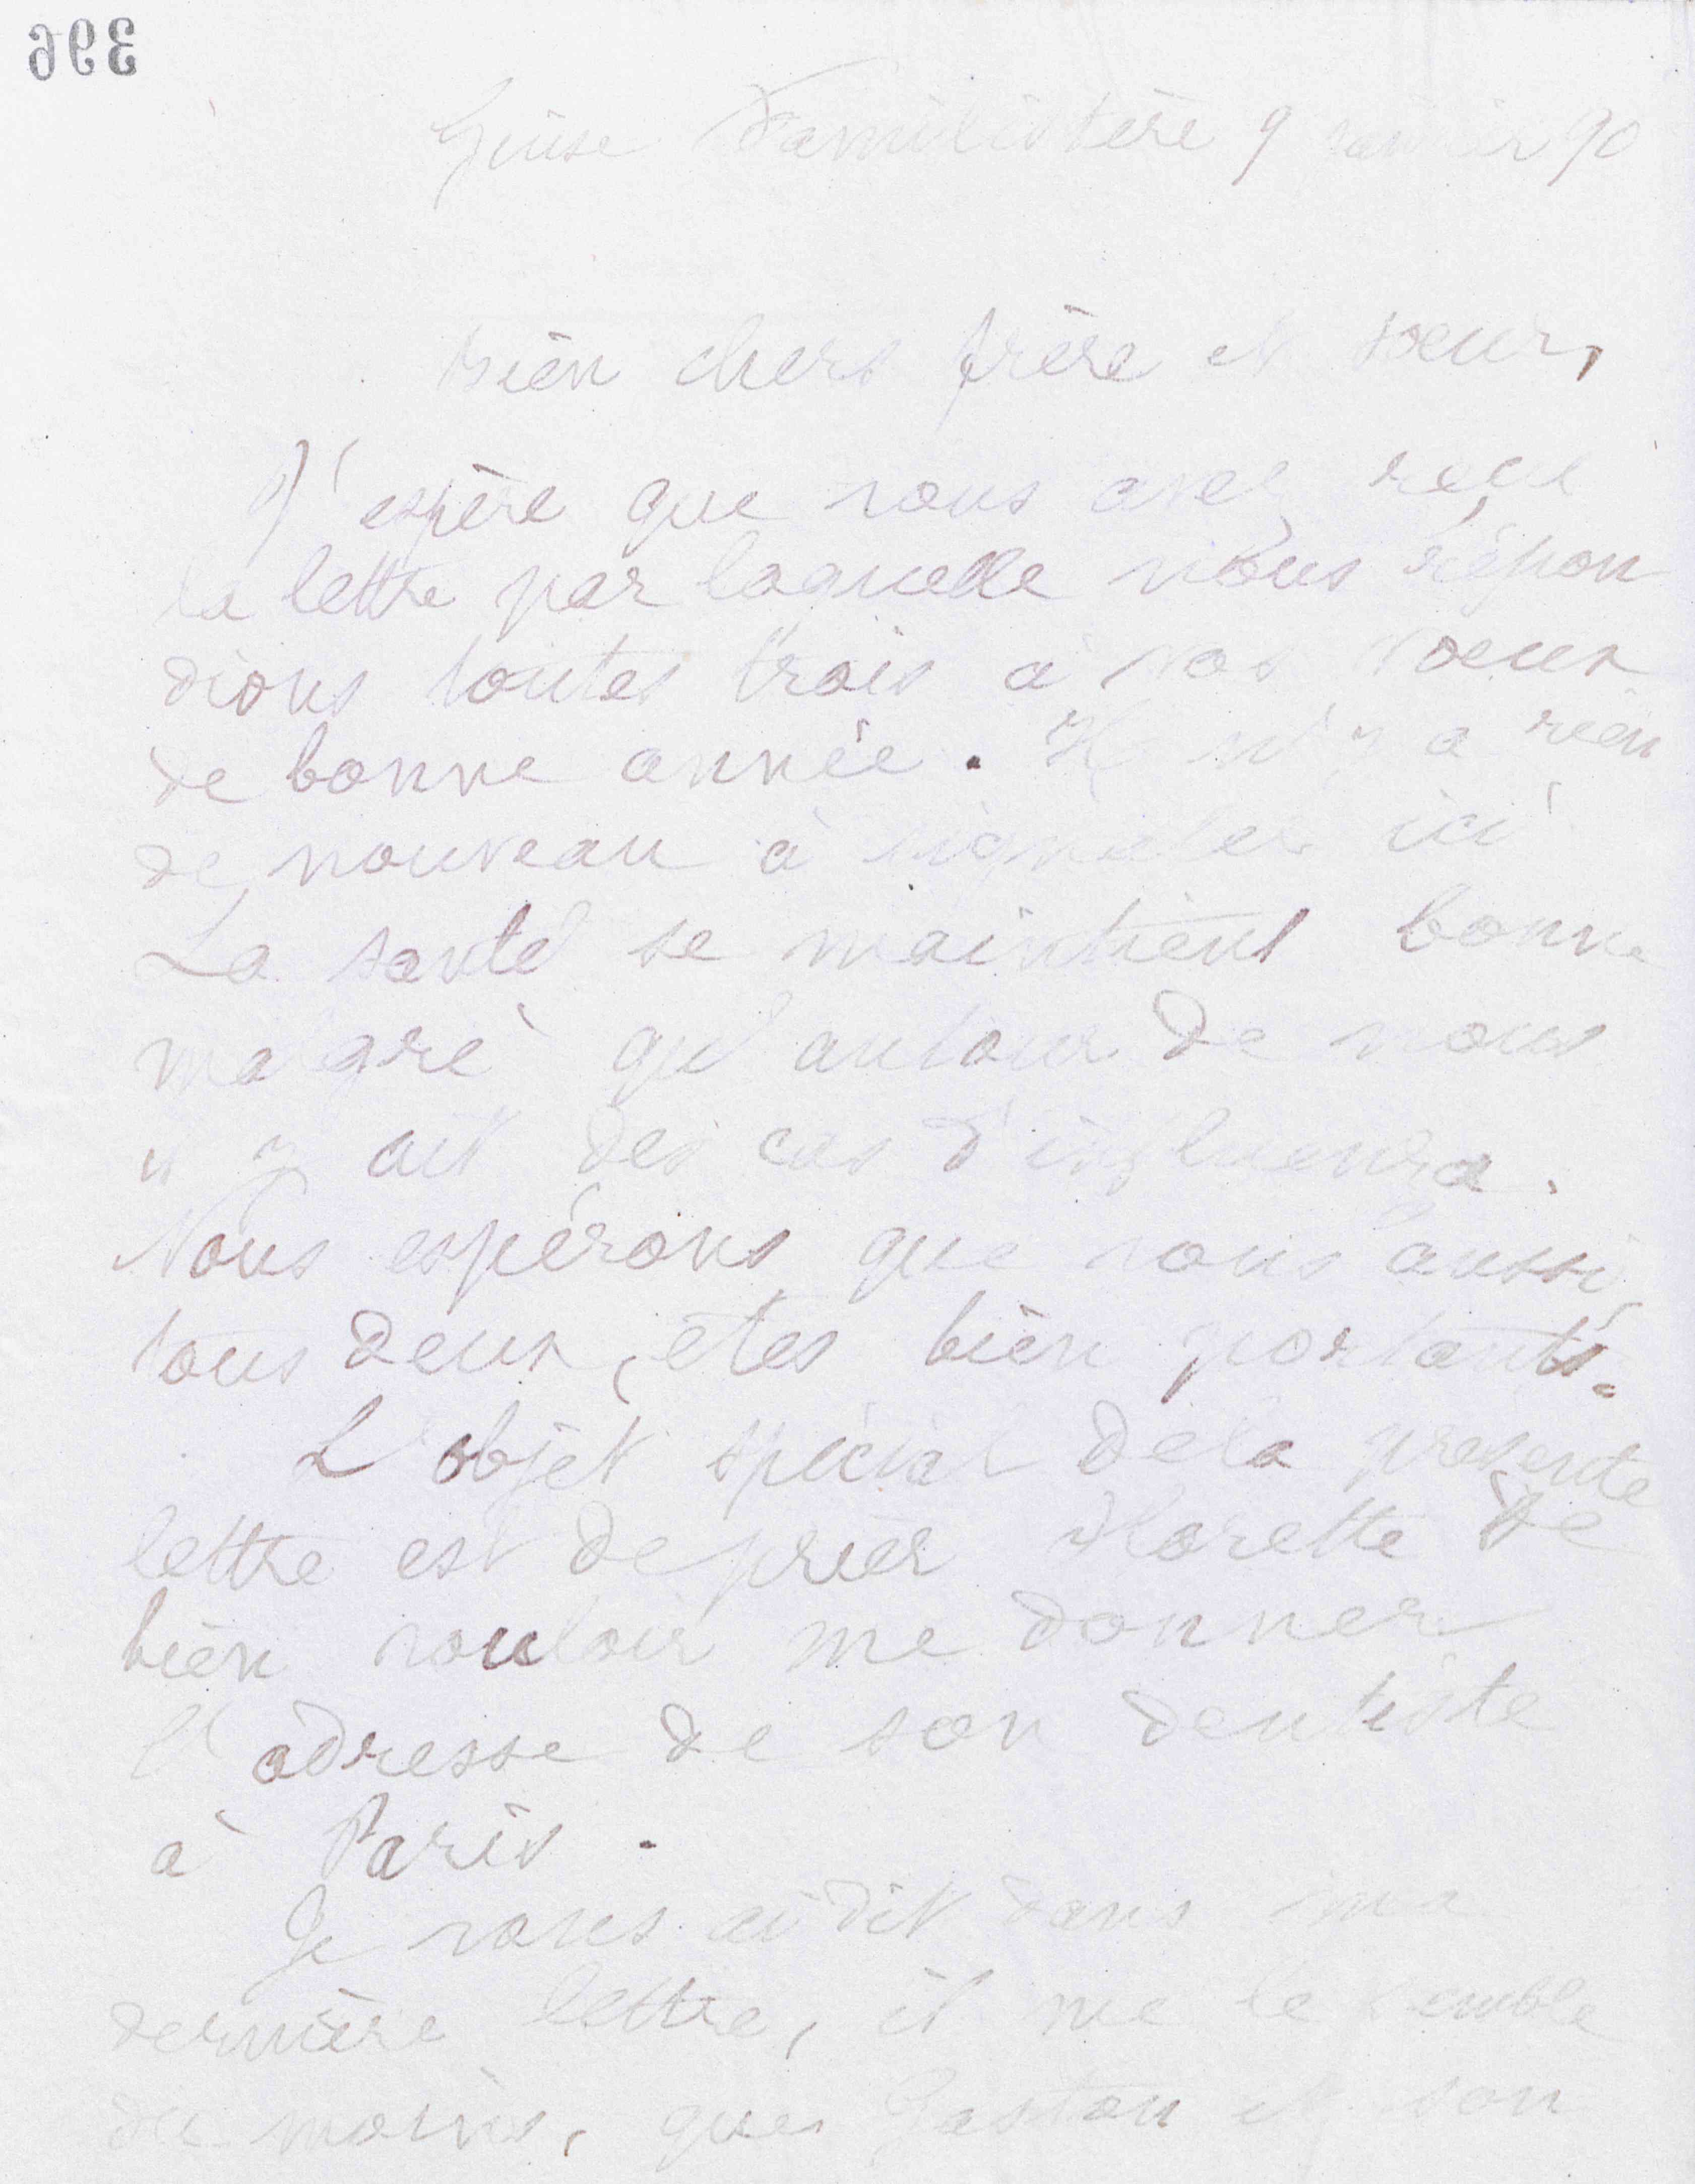 396
Guise Familistère 9 janvier 90
Bien chers frère et sœur,
J'espère que vous avez reçu
la lettre par laquelle nous répon
dions toutes trois à vos vœux
de bonne année. Il n'y a rien
de nouveau à signaler ici
La santé se maintient bonne
malgré qu'autour de nous
il y ait des cas d'influenza.
Nous espérons que vous aussi,
tous deux, êtes bien portants.
L'objet spécial de la présente
lettre est de prier Florette de
bien vouloir me donner
l'adresse de son dentiste
à Paris.
Je vous ai dit dans ma
dernière lettre, il me le semble
du moins, que Gaston et son